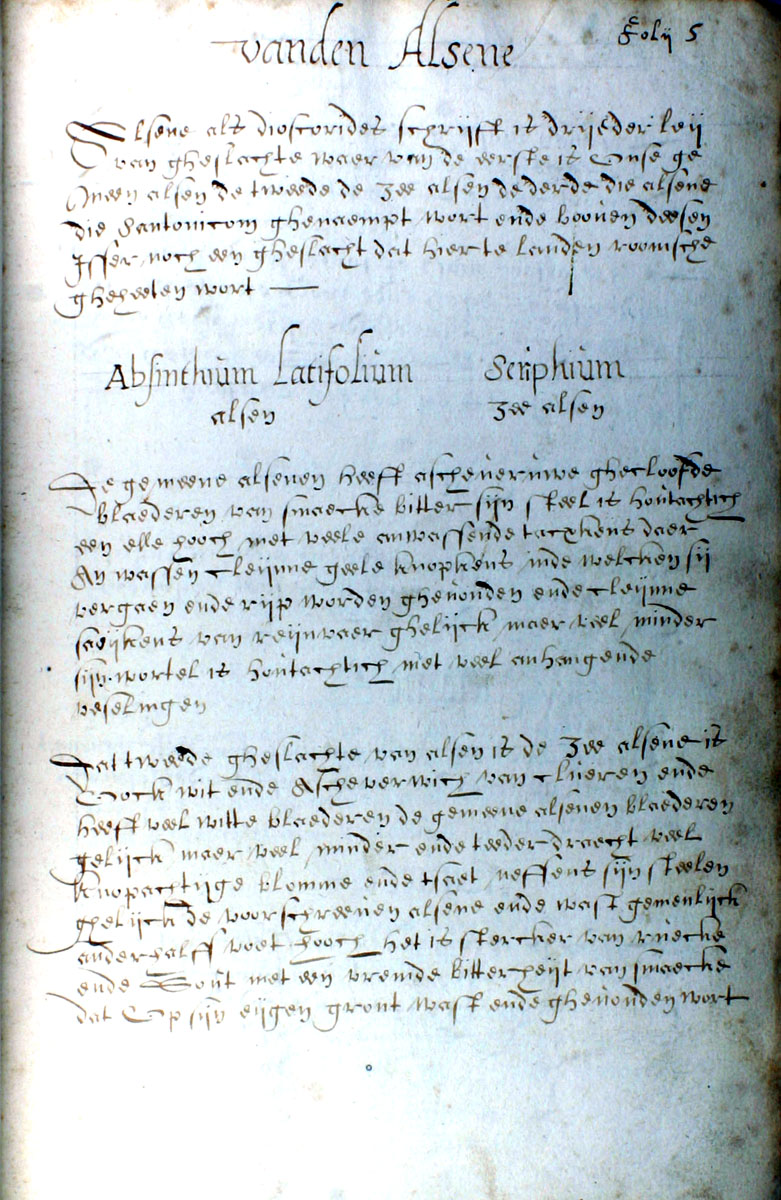 Folij 5
vanden Alsene
Alsene als dioscorides schrijft is drijederleij
van gheslachte waer van de eerste is Onse ge
meen alsen de tweede de zee alsen de derde die alsene
die Santonicom ghenaempt wort ende booven deesen
Isser noch een gheslacht dat hier te landen roomsche
gheheeten wort
Absinthium Latifolium Seriphium
alsen zee alsen
De gemeene alsenen heeft ascheveruwe ghecloofde
blaederen van smaecke bitter sijn steel is houtachtich
een elle hooch met veele anwassende tacxkens daer
An wassen cleijnne geele knopkens inde welcken sij
vergaen ende rijp worden ghevonden ende cleijnne
saeijkens van reijnvaer ghelijck maer veel minder
sijn wortel is houtachtich met veel anhangende
veselingen
Dat tweede gheslachte van alsen is de zee alsene is
Oock wit ende Ascheverwich van clueren ende
heeft veel witte blaederen de gemeene alsenen blaederen
gelijck maer veel minder ende teeder draecht veel
knopachtijge blomme ende tsaet neffens sijn steelen
ghelijck de voorschreeven alsene ende wast gemenlijck
anderhalff voet hooch het is stercker van ruecke
ende Sout met een vremde bitterheijt van smaecke
dat Op sijn eijgen gront wast ende ghevonden wort